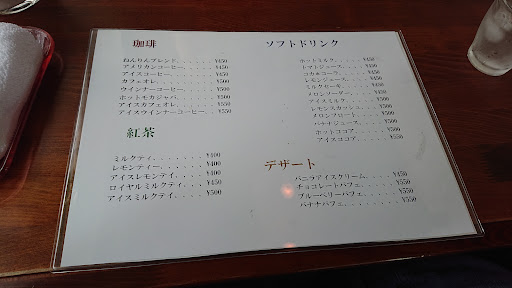 珈琲
ねんりんブレンド．．．．．¥450
アメリカンコーヒー．．．．¥450
アイスコーヒー．．．．．．¥450
カフェオレ．．．．．．．．¥500
ウインナーコーヒー．．．．¥500
ホットモカジャバ．．．．．¥500
アイスカフェオレ．．．．．¥550
アイスウインナーコーヒー．．¥550
紅茶
ミルクティ．．．．．．¥400
レモンティー．．．．．¥400
アイスレモンテイ．．．．¥400
ロイヤルミルクティ．．．¥450
アイスミルクティ．．．．¥500
ソフトドリンク
ホットミルク．
トマトジュース．
コカ・コーラ．
レモンジュース．
ミルクセーキ．
メロンソーダ．
アイスミルク．
レモンスカッシュ．
メロンフロート．
バナナジュース．
ホットココア．
アイスココア．．．．．．¥550
デザート
バニラアイスクリーム．．．．¥450
チョコレートパフェ．．．．．¥550
ブルーベリーパフェ．．．．．¥550
バナナパフェ．．．．．．．．¥550